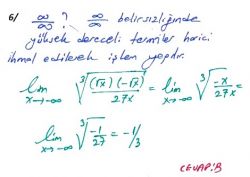 6/ ∞/∞ ? ∞/∞ belirsizliğinde
yüksek dereceli terimler harici
ihmal edilerek işlem yapılır.
lim x→-∞ ∛((√x)(-√x)/27x) = lim x→-∞ ∛(-x/27x) =
lim x→-∞ ∛(-1/27) = -1/3
CEVAP: B